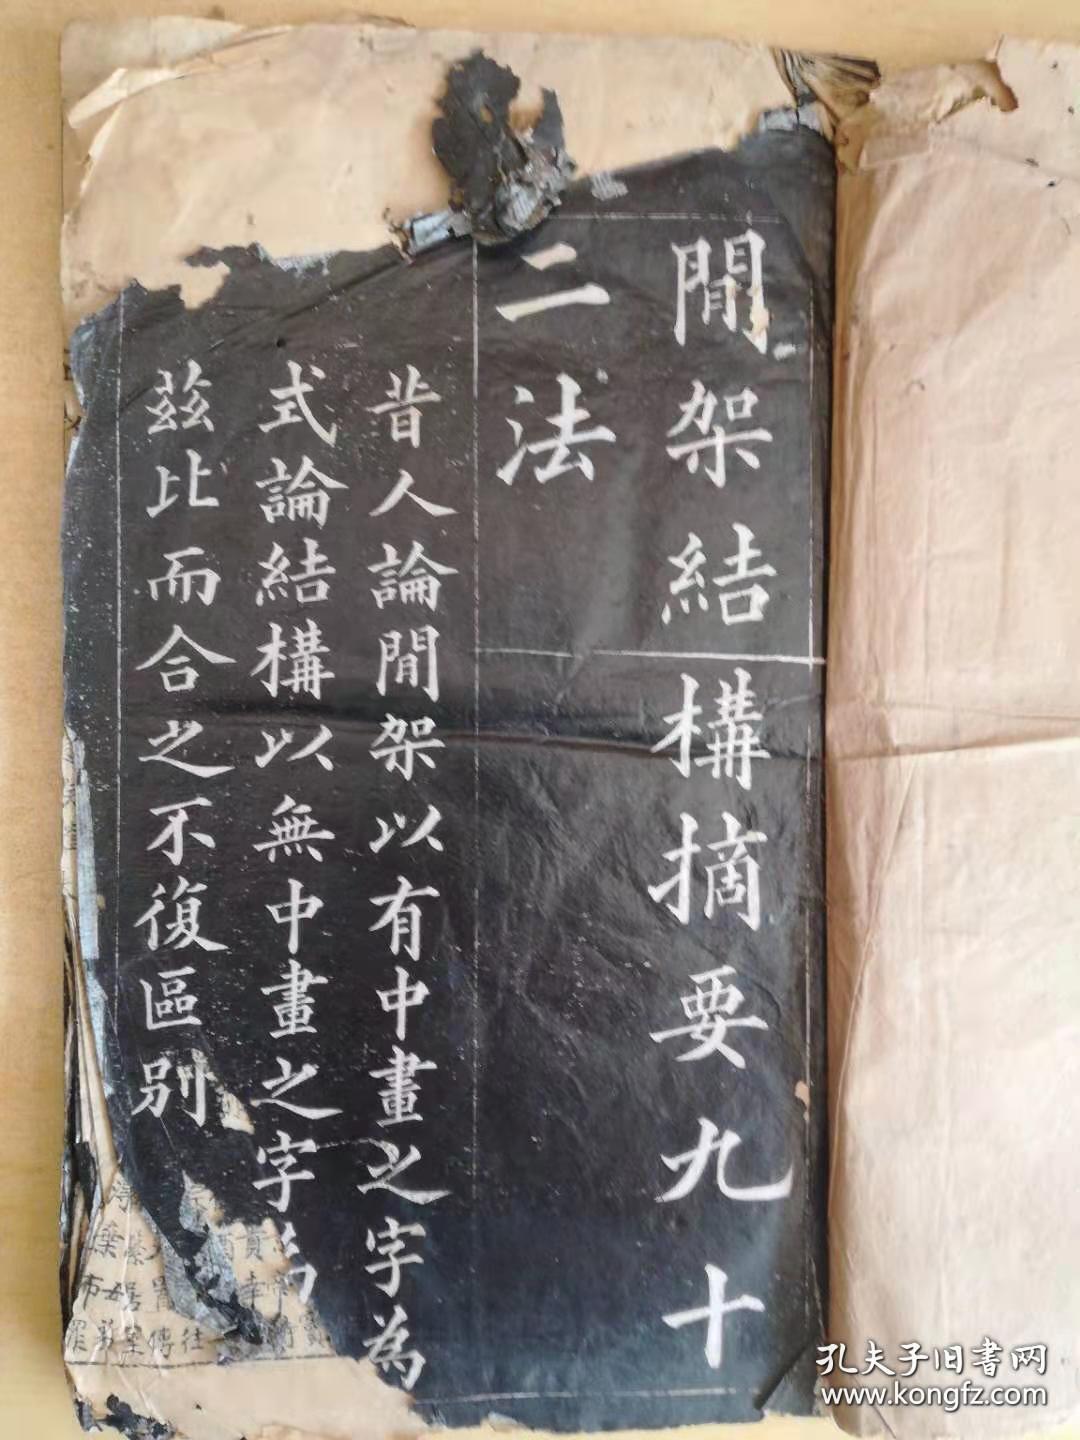 閒架結構摘要九十
二法
昔人論閒架以有中畫之字為
式論結構以無中畫之字為
茲比而合之不復區別
孔夫子旧書网
www.kongfz.com